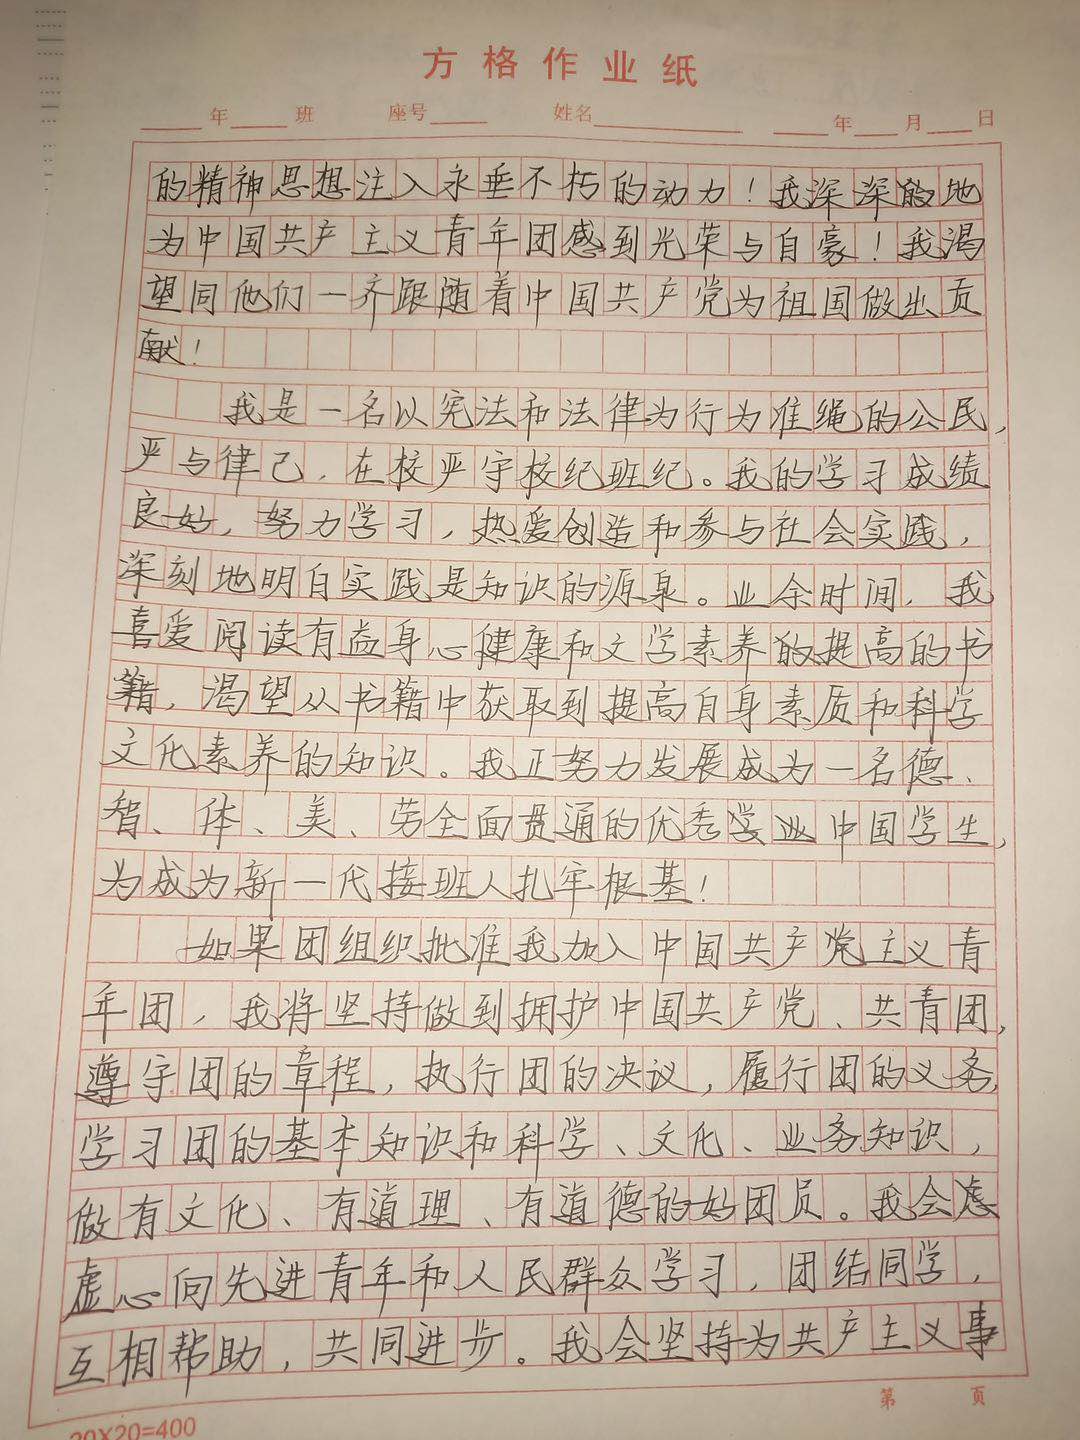 方格作业纸
年 班 座号 姓名 年 月 日
的精神思想注入永垂不朽的动力！我深深的地
为中国共产主义青年团感到光荣与自豪！我渴
望同他们一齐跟随着中国共产党为祖国做出贡
献！
我是一名以宪法和法律为行为准绳的公民，
严与律己，在校严守校纪班纪。我的学习成绩
良好，努力学习，热爱创造和参与社会实践，
深刻地明白实践是知识的源泉。业余时间，我
喜爱阅读有益身心健康和文学素养的提高的书
籍，渴望从书籍中获取到提高自身素质和科学
文化素养的知识。我正努力发展成为一名德、
智、体、美、劳全面贯通的优秀学业中国学生，
为成为新一代接班人扎牢根基！
如果团组织批准我加入中国共产党主义青
年团，我将坚持做到拥护中国共产党、共青团，
遵守团的章程，执行团的决议，履行团的义务，
学习团的基本知识和科学、文化、业务知识，
做有文化、有道理、有道德的好团员。我会虑
虚心向先进青年和人民群众学习，团结同学，
互相帮助，共同进步。我会坚持为共产主义事
第 页
20X20=400